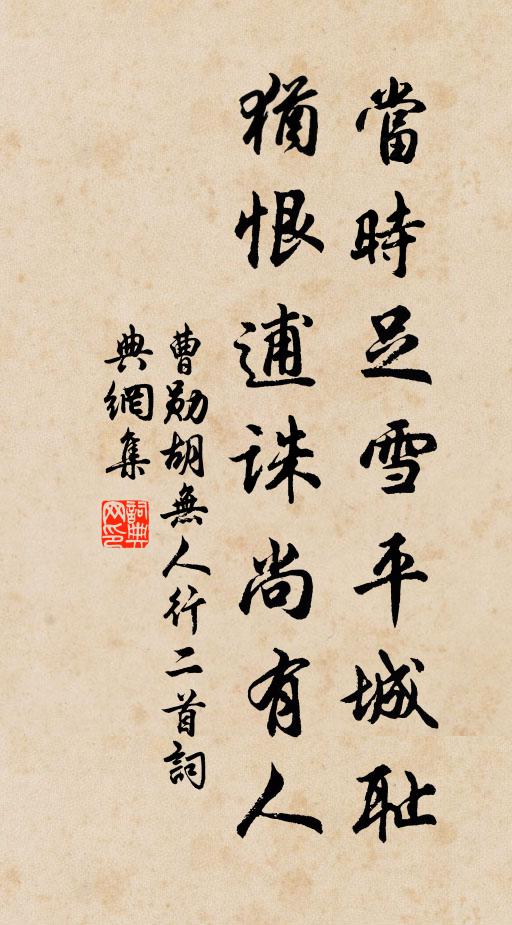 當時足雪平城耻
猶恨逋誅尚有人
曹勛胡無人行二首詞
典網集
詞典网印